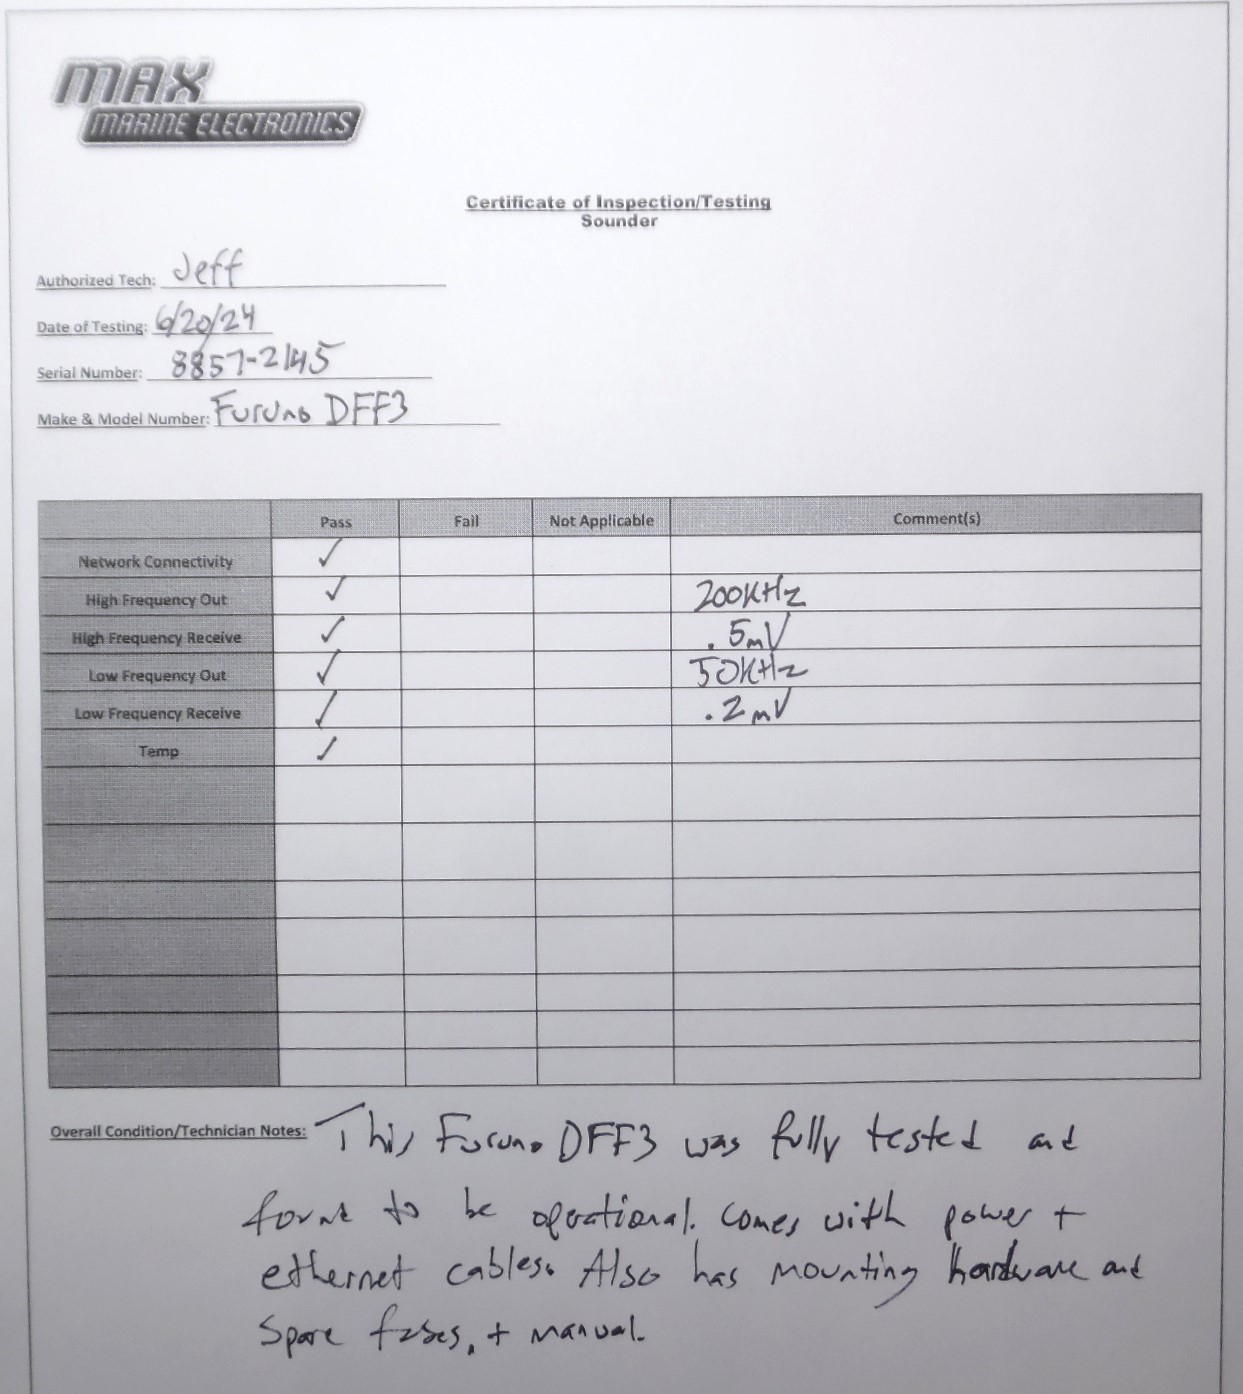 MAX
MARINE ELECTRONICS
Certificate of Inspection/Testing
Sounder
Authorized Tech: Jeff
Date of Testing: 6/20/24
Serial Number: 8857-2145
Make & Model Number: Furuno DFF3
Pass Fail Not Applicable Comment(s)
Network Connectivity ✓
High Frequency Out ✓ 200KHz
High Frequency Receive ✓ .5mV
Low Frequency Out ✓ 50KHz
Low Frequency Receive ✓ .2mV
Temp ✓
Overall Condition/Technician Notes: This Furuno DFF3 was fully tested and
found to be operational. Comes with power +
ethernet cables. Also has mounting hardware and
Spare fuses, + manual.